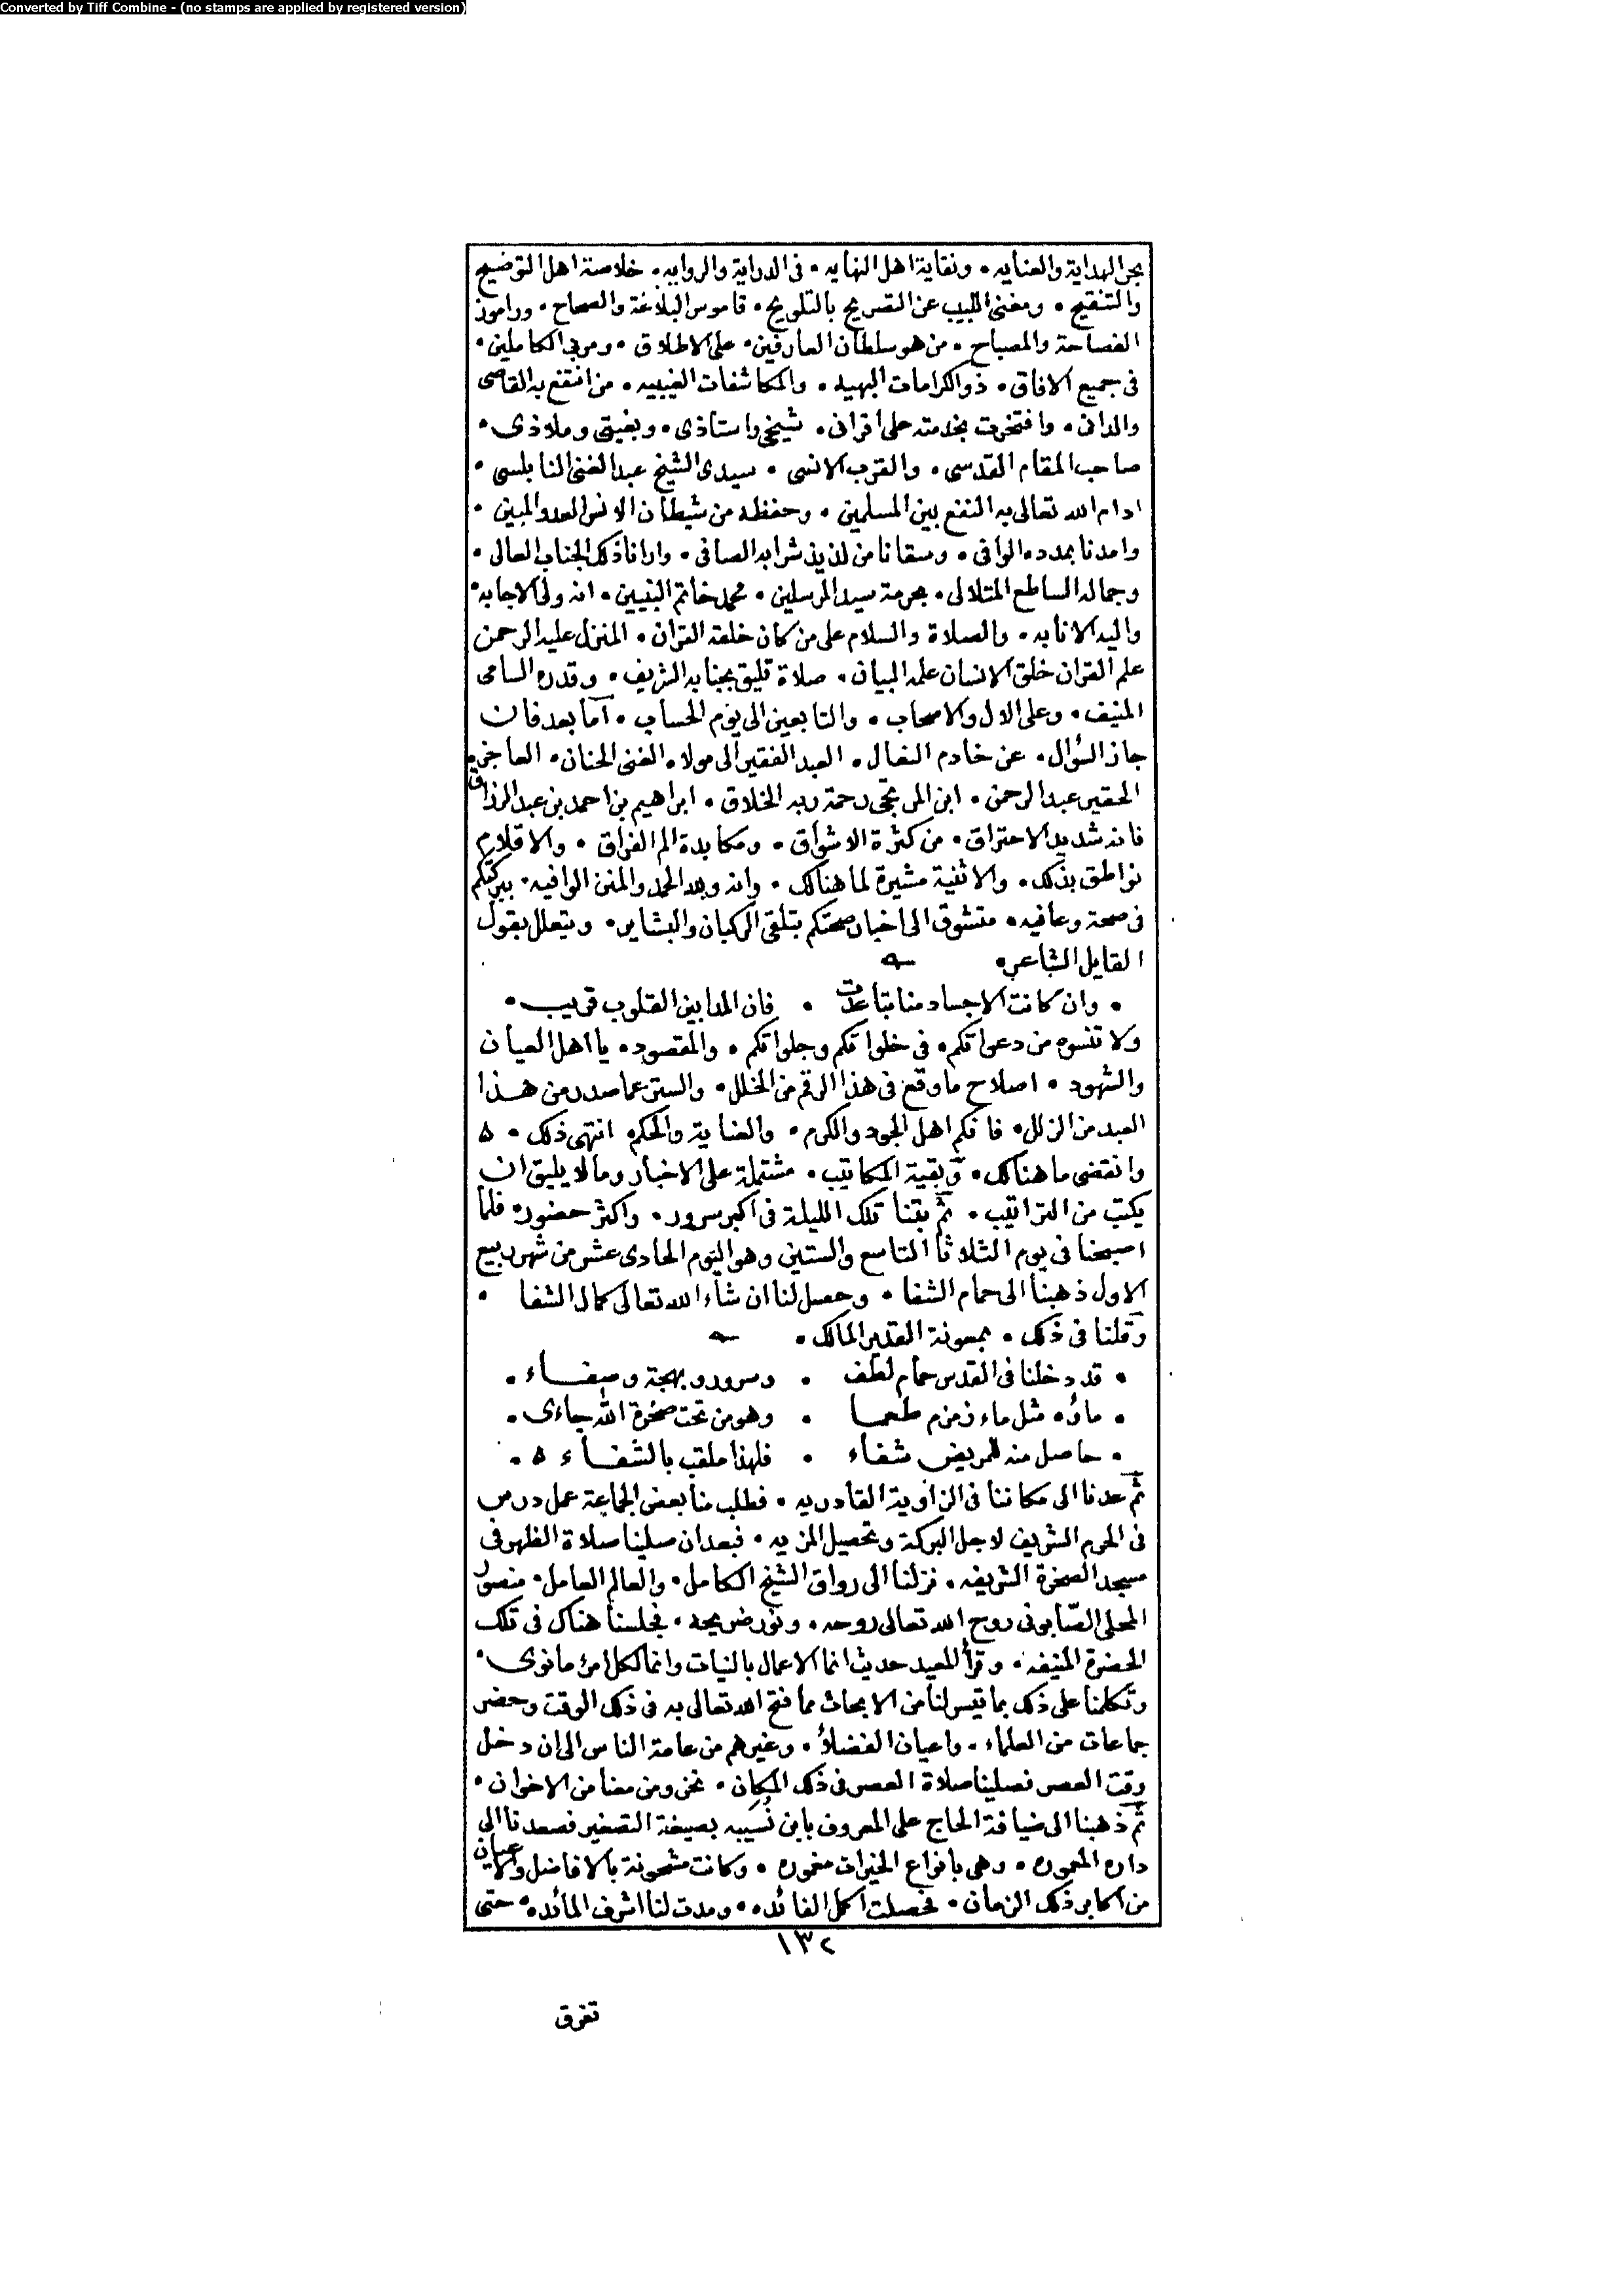 Converted by Tiff Combine - (no stamps are applied by registered version)
بحر الهداية والعنايه • ونقاية اهل النهايه • فى الدراية والروايه • خلاصة اهل التوضيح
والتنقيح • ومغنى اللبيب عن التصريح بالتلويح • قاموس البلاغة والصحاح • وراموز
الفصاحة والمصباح • من هو سلطان العارفين • على الاطلاق • ومربى الكاملين •
فى جميع الافاق • ذو الكرامات البهيه • والمكاشفات الغيبيه • من انتفع به القاصى
والدانى • وافتخرت بخدمته على اقرانى • شيخى واستاذى • وبغيتى وملاذى •
صاحب المقام القدسى • والقرب الانسى • سيدى الشيخ عبد الغنى النابلسى •
ادام الله تعالى به النفع بين المسلمين • وحفظه من شيطان الانس العدو المبين •
وامدنا بمدده الوافى • وسقانا من لذيذ شرابه الصافى • وارانا ذلك الجناب العال •
وجماله الساطع المتلالى • بحرمة سيد المرسلين • محمد خاتم النبيين • انه ولى الاجابه •
واليه الانابه • والصلاة والسلام على من كان خلقه القران • المنزل عليه الرحمن
علم القران خلق الانسان علمه البيان • صلاة تليق بجنابه الشريف • وقدره السامى
المنيف • وعلى الال والاصحاب • والتابعين الى يوم الحساب • اما بعد فان
جاز السؤال • عن خادم النعال • العبد الفقير الى مولاه الغنى الحنان • العاجز
الحقير عبد الرحمن • ابن المرتجى رحمة ربه الخلاق • ابراهيم بن احمد بن عبد الرزاق
فانه شديد الاحتراق • من كثرة الاشواق • ومكابدة الم الفراق • والاقلام
نواطق بذلك • والاثنية مشيرة لما هنالك • وانه ولله الحمد والمنن الوافيه • ببركتكم
فى صحة وعافيه • متشوق الى اخبار صحتكم بتلقى الركبان والبشاير • ويتعلل بقول
القايل الشاعر •
• وان كانت الاجساد منا تباعدت • فان المدا بين القلوب قريب •
ولا تنسوه من دعواتكم • فى خلواتكم وجلواتكم • والمقصود • يا اهل العيان
والشهود • اصلاح ما وقع فى هذا الرقم من الخلل • والستر عما صدر من هذا
العبد من الزلل • فانكم اهل الجود والكرم • والعناية والحكم انتهى ذلك • ه
وانقضى ما هنالك • وبقية المكاتيب • مشتملة على الاخبار وما لا يليق ان
يكتب من التراتيب • ثم بتنا تلك الليلة فى اكبر سرور • واكثر حضور • فلما
اصبحنا فى يوم الثلاثا التاسع والستين وهو اليوم الحادى عشر من شهر ربيع
الاول ذهبنا الى حمام الشفا • وحصل لنا ان شاء الله تعالى كمال الشفا •
وقلنا فى ذلك • بمعونة القدير المالك •
• قد دخلنا فى القدس حمام لطف • وسرور وبهجة وصفاء •
• ماؤه مثل ماء زمزم طعما • وهو من تحت صخرة الله جاءى •
• حاصل منه للمريض شفاء • فلهذا ملقب بالشفاء ه •
ثم عدنا الى مكاننا فى الزاوية القادريه • فطلب منا بعض الجماعة عمل درس
فى الحرم الشريف لاجل البركة وتحصيل المزيه • فبعد ان صلينا صلاة الظهر فى
مسجد الصخرة الشريفه • نزلنا الى رواق الشيخ الكامل • والعالم العامل • منصور
المحلى الصّابونى روح الله تعالى روحه • ونور ضريحه • فجلسنا هناك فى تلك
الحضرة المنيفه • وقرأ المعيد حديث انما الاعمال بالنيات وانما لكل امرئ ما نوى •
وتكلمنا على ذلك بما تيسر لنا من الابحاث مما فتح الله تعالى به فى ذلك الوقت وحضر
جماعات من العلماء • واعيان الفضلاء • وغيرهم من عامة الناس الى ان دخل
وقت العصر فصلينا صلاة العصر فى ذلك المكان • نحن ومن معنا من الاخوان •
ثم ذهبنا الى ضيافة الحاج على المعروف بابن نُسَيبه بصيغة التصغير فصعدنا الى
داره المعموره • وهى بانواع الخيرات مغموره • وكانت مشحونة بالافاضل والاعيان
من اكابر ذلك الزمان • فحصلت اكمل الفائده • ومدت لنا اشرف المائده • حتى
١٣٢
تفرق